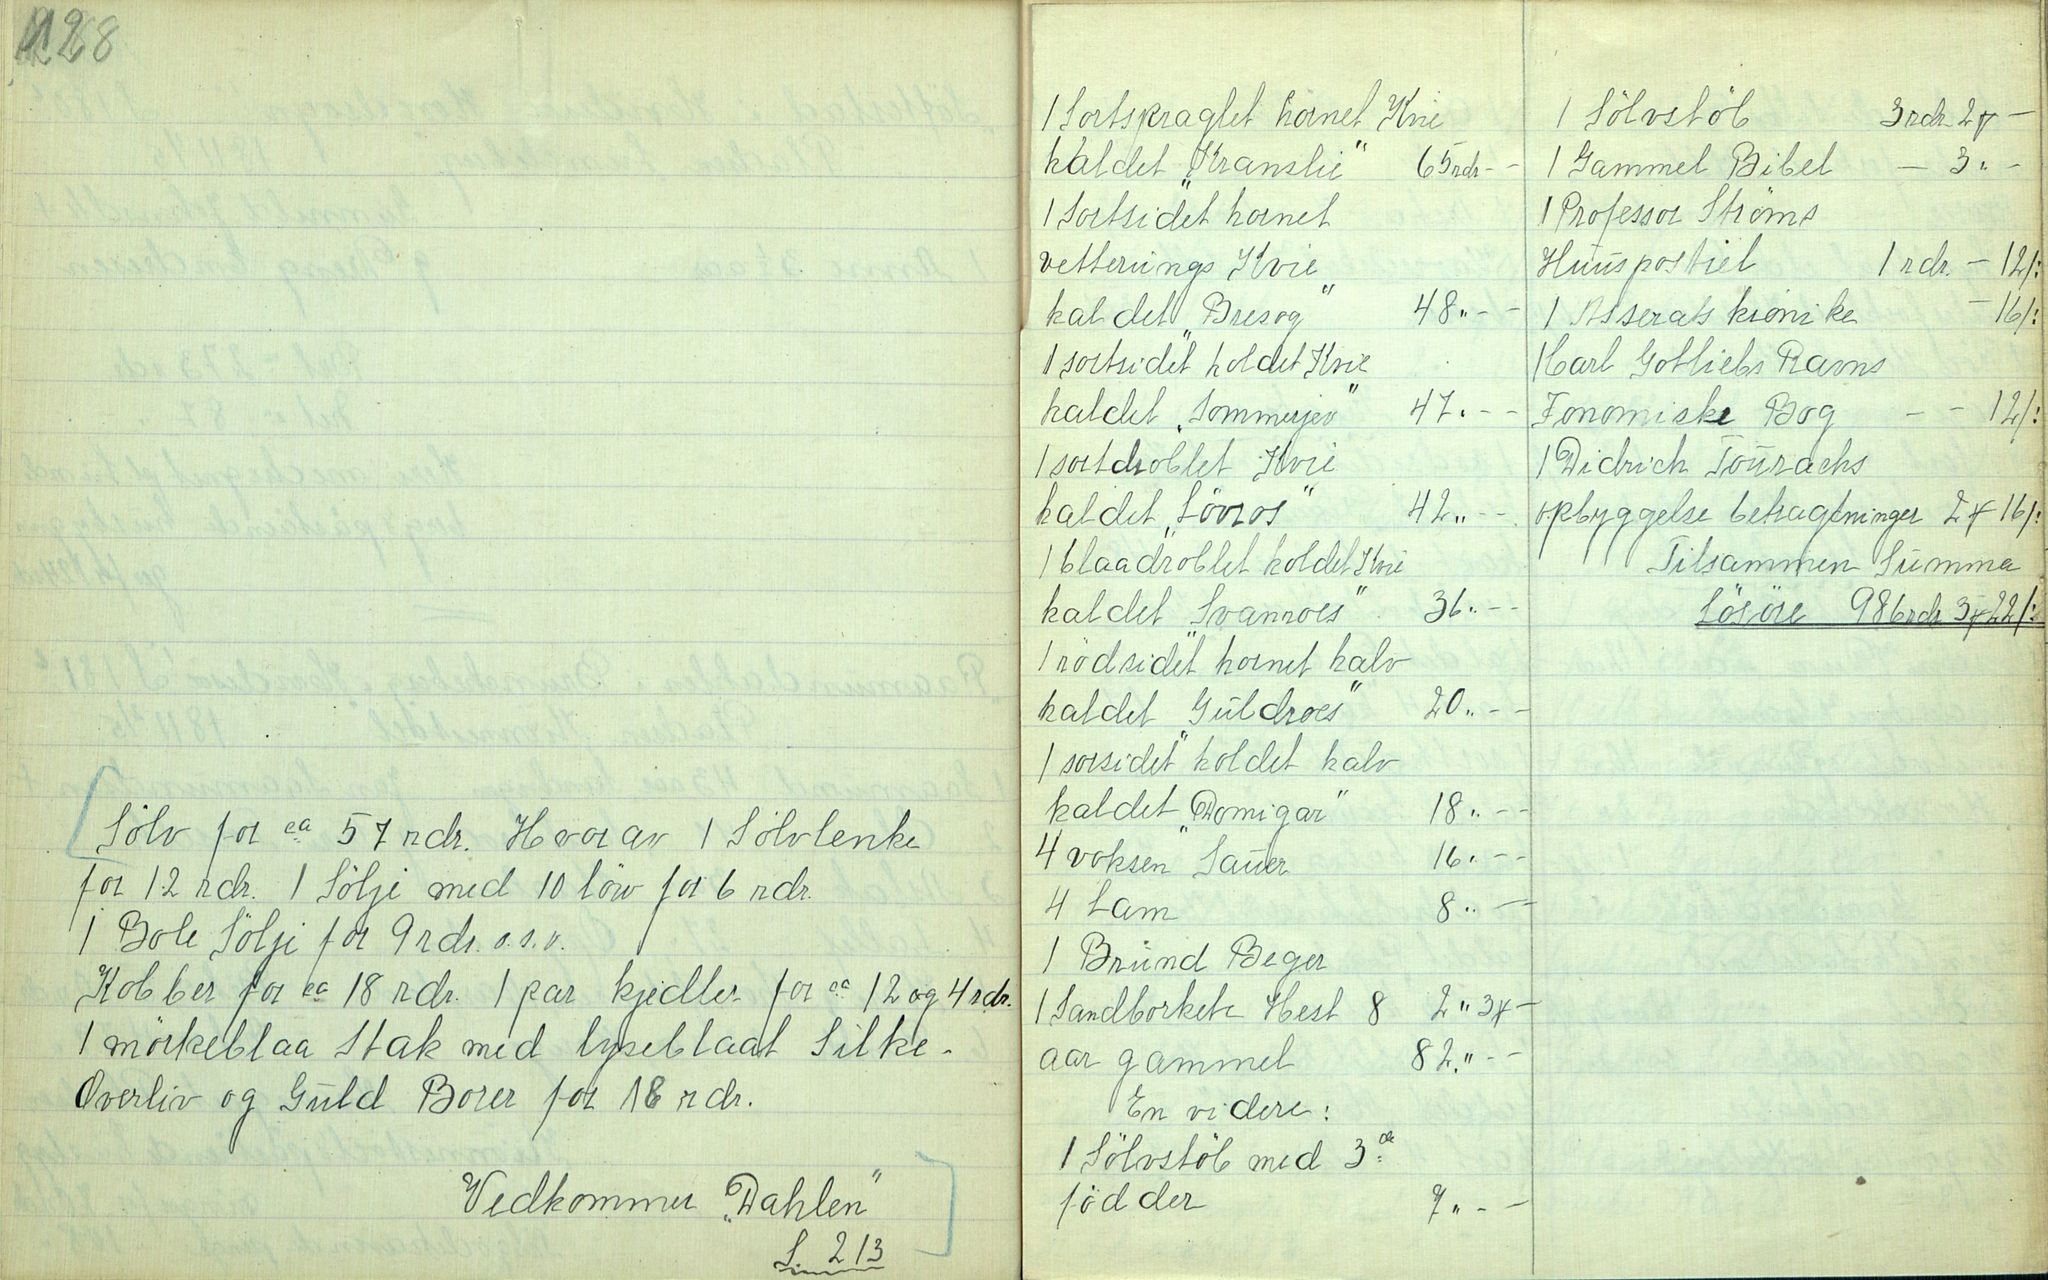 128
Sölv for ca 57 rdr. Hvorav 1 Sölvlenke
for 12 rdr. 1 Sölje med 10 löv for 6 rdr.
1 Bole Sölje for 9 rdr. o.s.v.
Kobber for ca 18 rdr. 1 par kjedler for ca 12 og 4 rdr.
1 mörkeblaa Stak med lyseblaat Silke-
Overliv og Guld Borer for 18 rdr.
Vedkommer „Dahlen"
S. 213
1 Sortspraglet hornet Kvie
kaldet „Kranslie" 65 rdr - -
1 Sortsidet hornet
vetterungs Kvie
kaldet „Bresog" 48 „ - -
1 sortsidet koldet Kvie
kaldet „Sommerjev" 47 „ - -
1 sortdroblet Kvie
kaldet „Lövros" 42 „ - -
1 blaadroblet koldet Kvie
kaldet „Svanroes" 36 „ - -
1 rödsidet hornet kalv
kaldet „Guldroes" 20 „ - -
1 sorsidet koldet kalv
kaldet „Domigar" 18 „ - -
4 voksen Sauer 16 „ - -
4 Lam 8 „ - -
1 Brund Beger
1 Sandborkete Hest 8 2 „ 3 -
aar gammel 82 „ - -
En videre:
1 Sölvstöb med 3de
födder 7 „ - -
1 Sölvstöb 3 rdr 2 -
1 Gammel Bibel - 3 „ -
1 Professor Ströms
Huuspostiel 1 rdr. - 12/:
1 Asserats krönike - 16/:
1 Carl Gotliebs Ravns
Fonomiske Bog - - 12/:
1 Didrich Tourachs
opbyggelse betragtninger 2 16/:
Tilsammen Summa
Lösöre 986 rdr 3 22/: